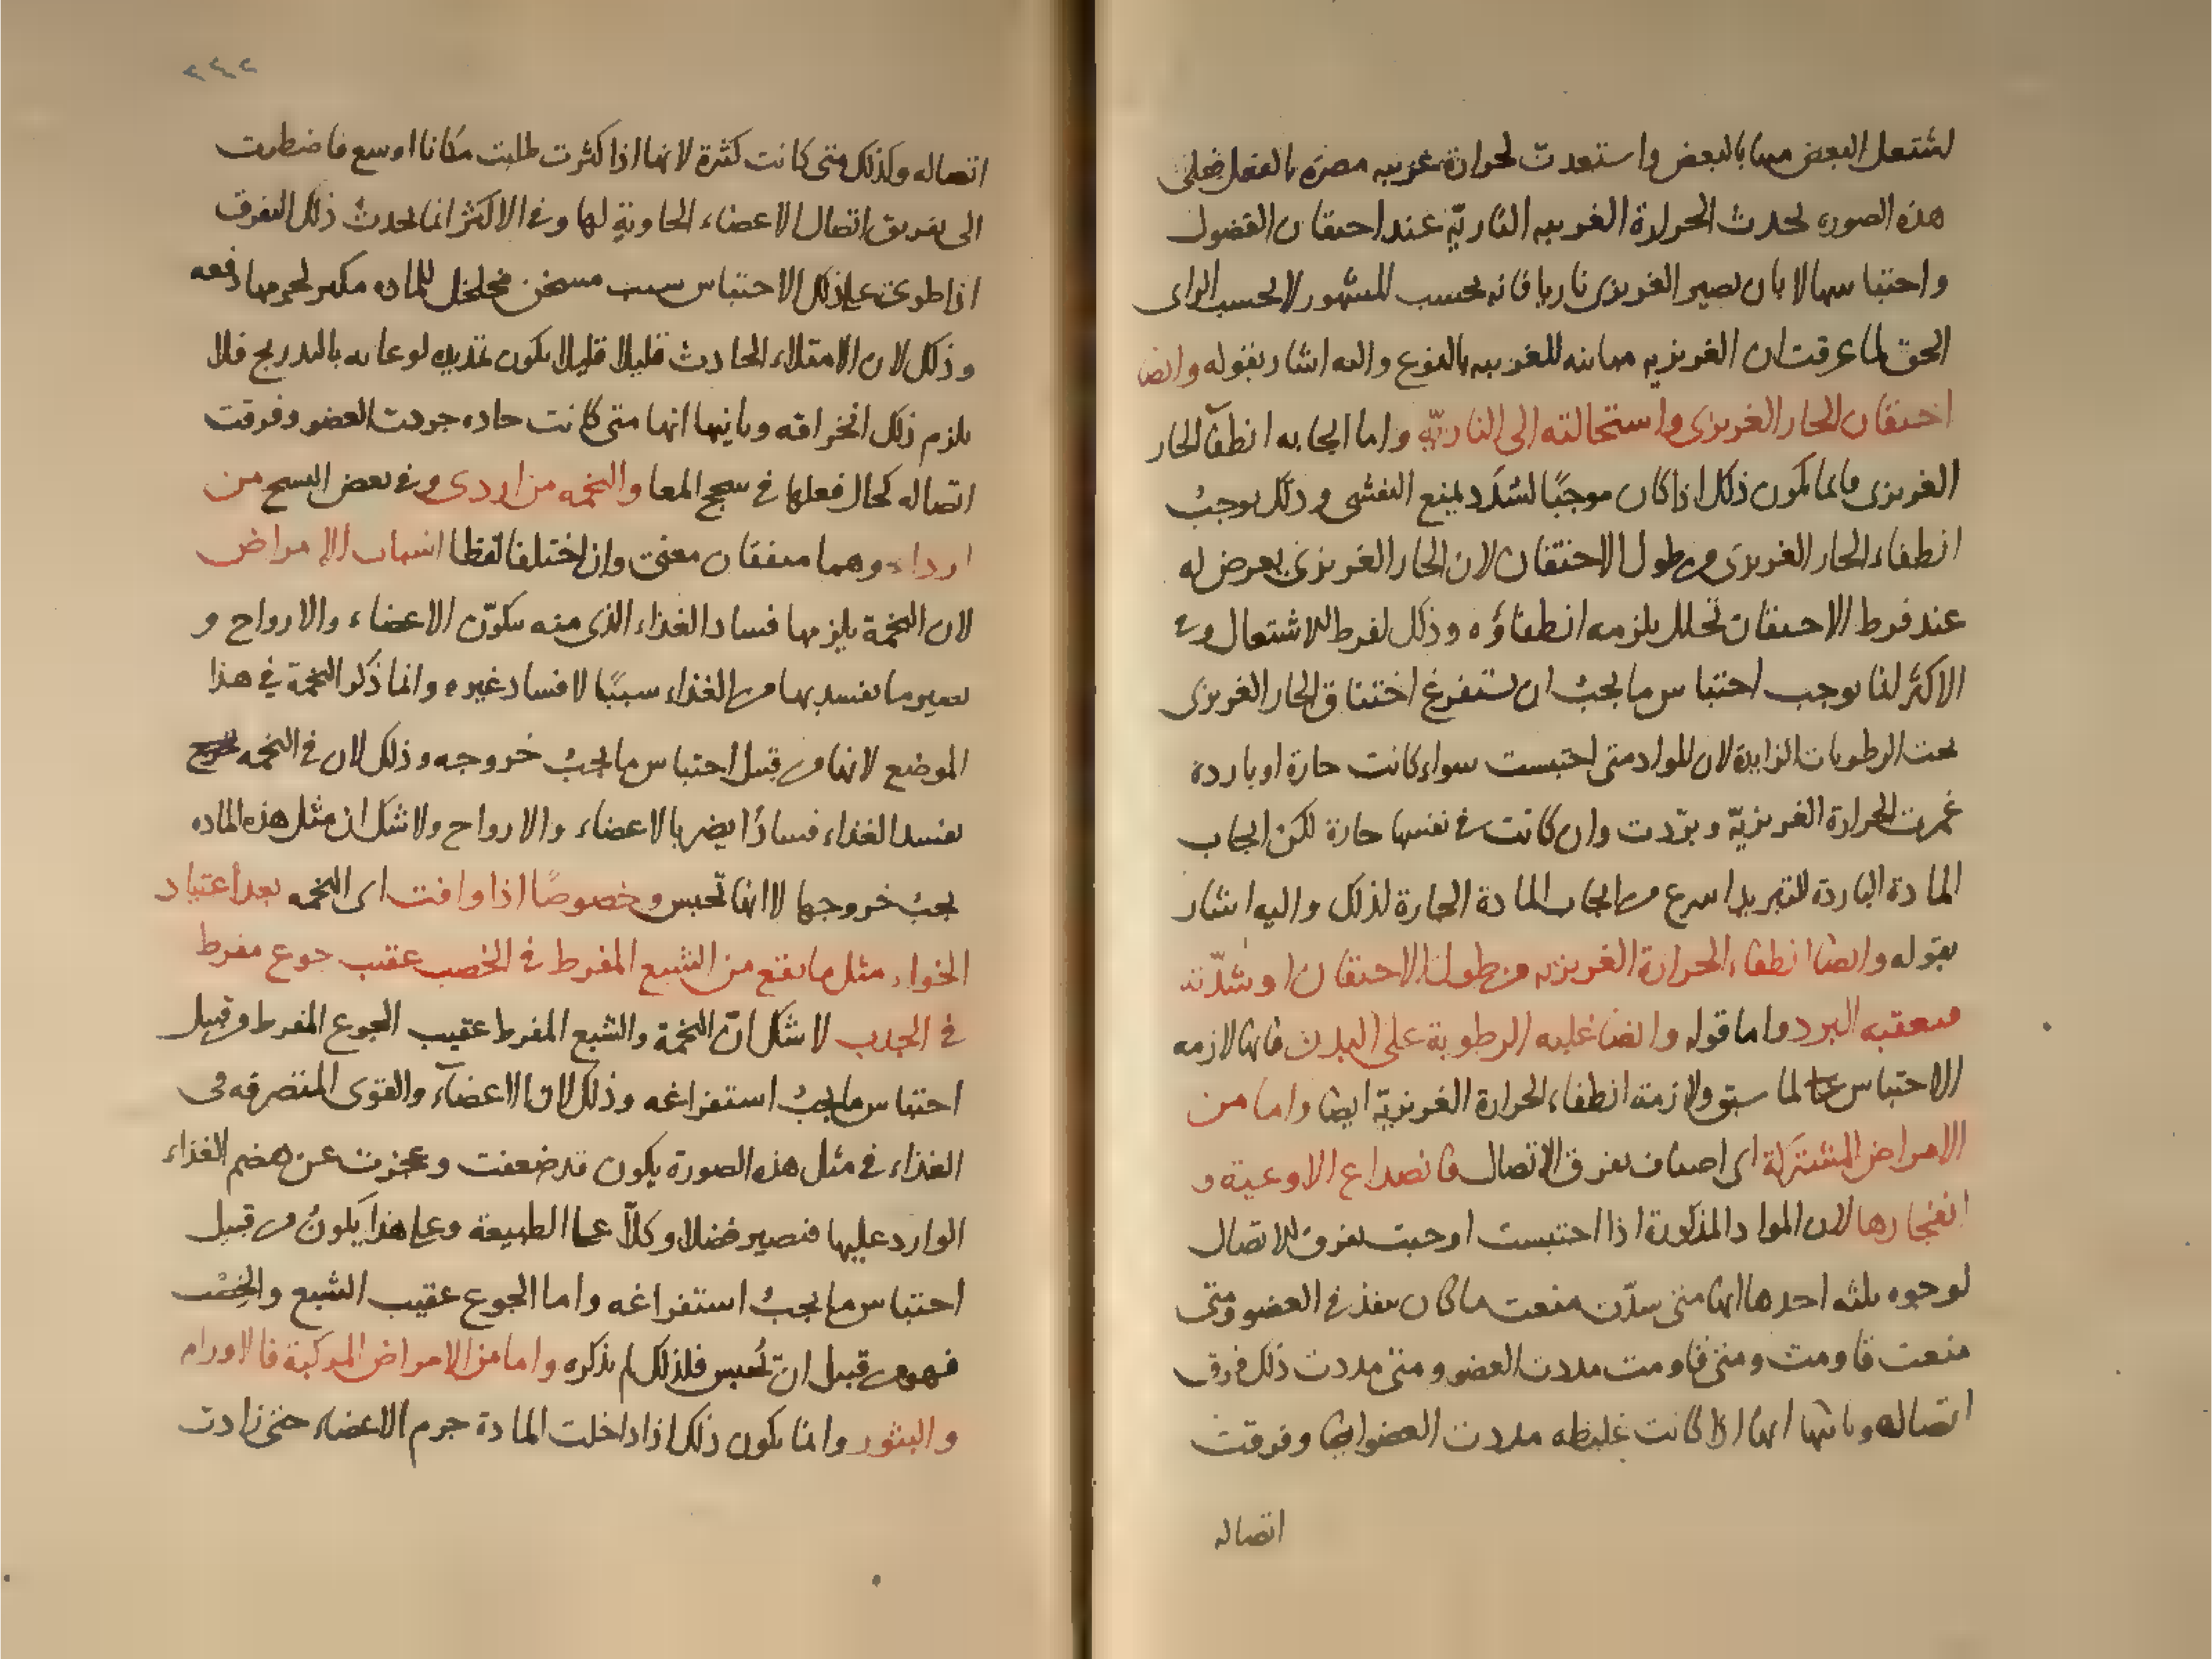 لشتعل البعض منها بالبعض واستعدت لحرارة غريبه مضره بالفعل فعلى
هذه الصوره تحدث الحرارة الغريبه الناريّة عند احتقان الفضول
واحتباسها لا بان يصير الغريزى ناريا فانه بحسب المشهور لا بحسب الراى
الحق لما عرفت ان الغريزيه مباينه للغريبه بالنوع واليه اشار بقوله وايضا
احتقان الحار الغريزى واستحالته الى الناريّه واما ايجابه انطفآ الحار
الغريزى فانما يكون ذلك اذا كان موجبًا لشدد يمنع التفشى وذلك يوجب
انطفاء الحار الغريزى من طول الاحتقان لان الحار الغريزى يعرض له
عند فرط الاحتقان تحلل يلزمه انطفاؤه وذلك لفرط الاشتعال وفى
الاكثر انما يوجب احتباس ما يجب ان يستفرغ اختناق الحار الغريزى
تحت الرطوبات الزايدة لان المواد متى احتبست سواء كانت حارة او باردة
غمرت الحرارة الغريزيّة وبرّدت وان كانت فى نفسها حارة لكن ايجاب
المادة الباردة للتبريد اسرع من ايجاب المادة الحارة لذلك واليه اشار
بقوله وايضا انطفاء الحرارة الغريزيه من طول الاحتقان او شدّته
فيعقبه البرد واما قوله وايضا غلبه الرطوبة على البدن فانها لازمه
الاحتباس لما سبق ولازمة انطفاء الحرارة الغريزيّة ايضا واما من
الامراض المشتركة اى اصناف تفرق الاتصال فانصداع الاوعية و
انفجارها لان المواد المذكورة اذا احتبست اوجبت تفرق الاتصال
لوجوه ثلثه احدها انها متى سدّت منعت ما كان ينفذ فى العضو ومتى
منعت قاومت ومتى قاومت مددت العضو ومتى مددت ذلك فرق
اتصاله وثانيها انها اذا كانت غليظه مددت العضو ايضا وفرقت
اتصاله
اتصاله وكذلك متى كانت كثرة لانها اذا كثرت طلبت مكانا اوسع فاضطرت
الى تفريق اتصال الاعضاء الحاوية لها وفى الاكثر انما يحدث ذلك التفرق
اذا طرى على ذلك الاحتباس سبب مسخن مخلخل للماده مكبر لحجمها دفعه
وذلك لان الامتلاء الحادث قليلا قليلا يكون تمديده لوعائه بالتدريج فلا
يلزم ذلك انخراقه وثانيها انها متى كانت حاده جردت العضو وفرقت
اتصاله كحال فعلها فى سحج المعا والتخمه من اردى وفى بعض النسخ من
ارداء وهما متفقان معنى وان اختلفا لفظا اسباب الامراض
لان التخمة يلزمها فساد الغذاء الذى منه تتكوّن الاعضاء والارواح و
يصير ما يفسد بها من الغذاء سببًا لافساد غيره وانما ذكر التخمة فى هذا
الموضع لانها من قبيل احتباس ما يجب خروجه وذلك لان فى التخمه
يفسد الغذاء فسادًا يضر بالاعضاء والارواح ولا شك ان مثل هذه الماده
يجب خروجها لا انها تحبس وخصوصًا اذا وافت اى التخمه بعد اعتياد
الخواء مثل ما يقع من الشبع المفرط فى الخصب عقيب جوع مفرط
فى الجدب لا شك انّ التخمة والشبع المفرط عقيب الجوع المفرط من قبيل
احتباس ما يجب استفراغه وذلك لان الاعضآء والقوى المتصرفه فى
الغذاء فى مثل هذه الصورة يكون قد ضعفت وعجزت عن هضم الغذاء
الوارد عليها فتصير فضلا وكلاّ على الطبيعة وعلى هذا يكون من قبيل
احتباس ما يجب استفراغه واما الجوع عقيب الشبع والخصب
فهو من قبيل انّ تحبس فلذلك لم يذكره واما من الامراض المركبة فالاورام
والبثور وانما يكون ذلك اذا داخلت المادة جرم الاعضاء حتى زادت